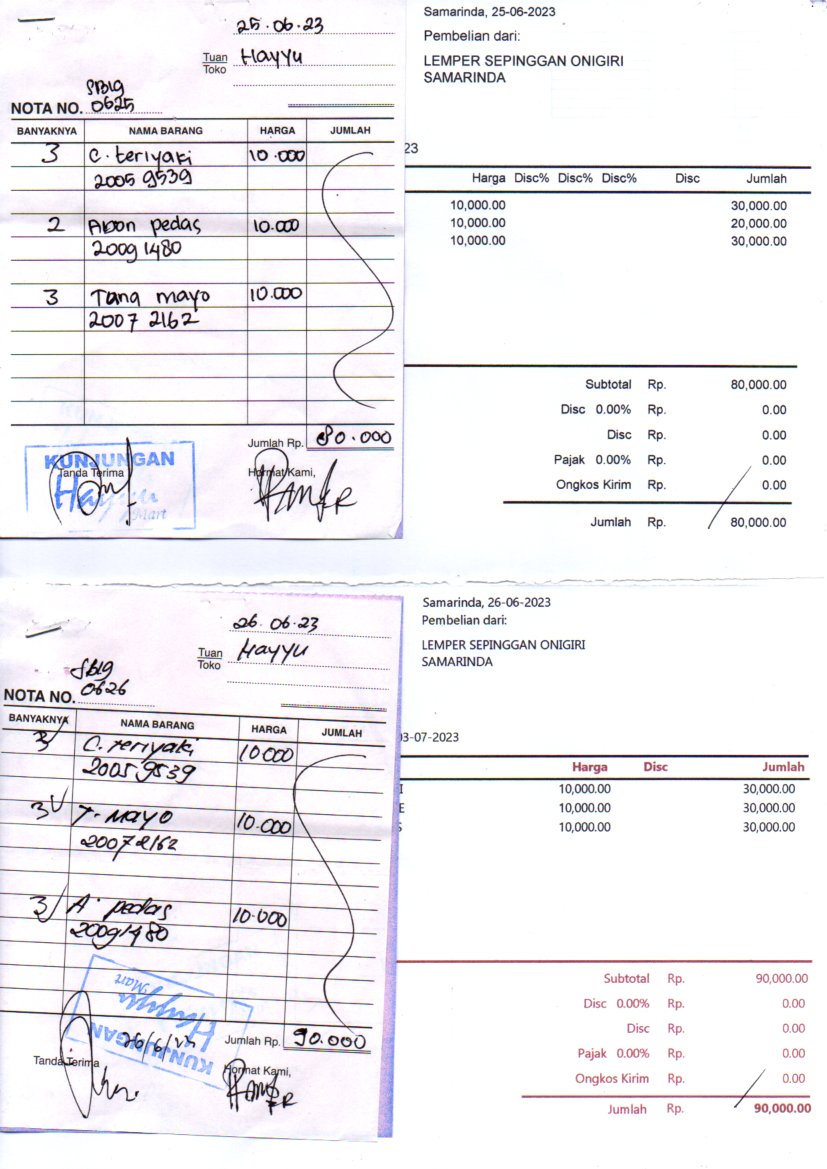 25.06.23
Tuan
Toko
Hayyu
SBlg
NOTA NO. 0625
BANYAKNYA NAMA BARANG HARGA JUMLAH
3 C. teriyaki 10.000
2005 9539
2 Abon pedas 10.000
2009 1480
3 Tuna mayo 10.000
2007 2162
Jumlah Rp. 80.000
KUNJUNGAN
Tanda Terima
Hormat Kami,
Hayyu
Mart
Samarinda, 25-06-2023
Pembelian dari:
LEMPER SEPINGGAN ONIGIRI
SAMARINDA
23
Harga Disc% Disc% Disc% Disc Jumlah
10,000.00 30,000.00
10,000.00 20,000.00
10,000.00 30,000.00
Subtotal Rp. 80,000.00
Disc 0.00% Rp. 0.00
Disc Rp. 0.00
Pajak 0.00% Rp. 0.00
Ongkos Kirim Rp. 0.00
Jumlah Rp. 80,000.00
26.06.23
Tuan
Toko
Hayyu
SBlg
NOTA NO. 0626
BANYAKNYA NAMA BARANG HARGA JUMLAH
3 C. teriyaki 10.000
2005 9539
3 T. Mayo 10.000
2007 2162
3 A. pedas 10.000
20091480
Jumlah Rp. 90.000
KUNJUNGAN
Hayyu
Mart
26/6/23
Tanda Terima
Hormat Kami,
Samarinda, 26-06-2023
Pembelian dari:
LEMPER SEPINGGAN ONIGIRI
SAMARINDA
03-07-2023
Harga Disc Jumlah
I 10,000.00 30,000.00
E 10,000.00 30,000.00
S 10,000.00 30,000.00
Subtotal Rp. 90,000.00
Disc 0.00% Rp. 0.00
Disc Rp. 0.00
Pajak 0.00% Rp. 0.00
Ongkos Kirim Rp. 0.00
Jumlah Rp. 90,000.00